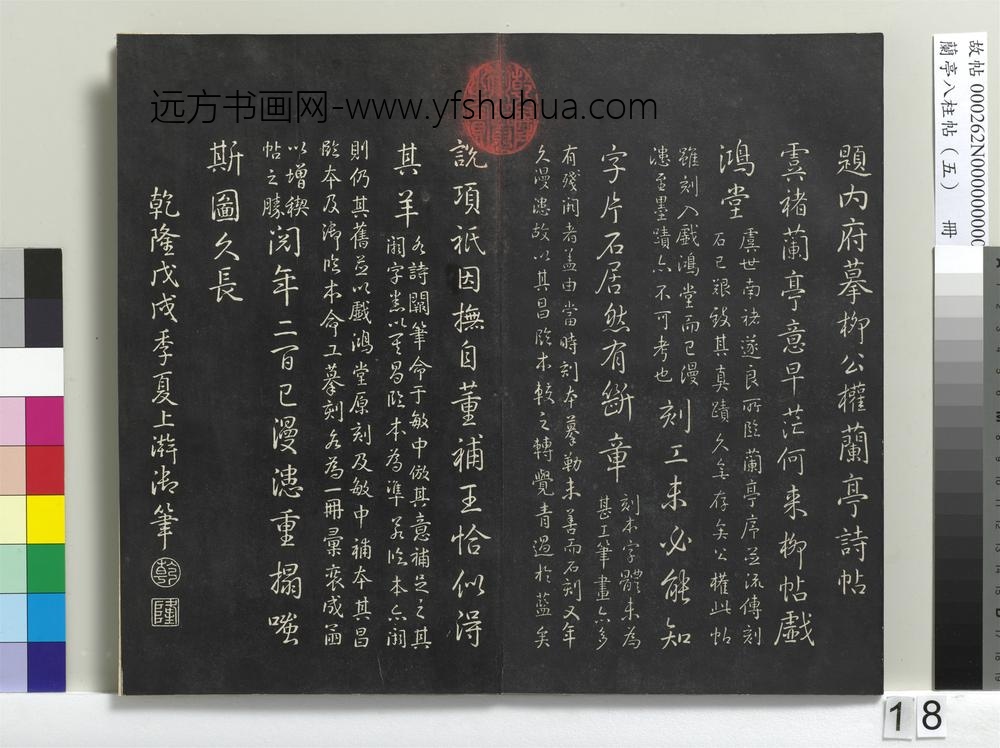 題内府摹柳公權蘭亭詩帖
虞褚蘭亭意早茫何来柳帖戲
鴻堂
虞世南褚遂良所臨蘭亭序並流傳刻
石已艱致其真蹟久無存矣公權此帖
雖刻入戲鴻堂而已漫
漶至墨蹟亦不可考也
刻工未必能知
字片石居然有斷章
刻本字體未為
甚工筆畫亦多
有殘闕者盖由當時刻本摹勒未善而石刻又年
久漫漶故以其昌臨本較之轉覺青過於藍矣
説項祇因撫自董補王恰似得
其羊
各詩闕筆命于敏中倣其意補之之其
闕字悉以其昌臨本為準若臨本亦闕
則仍其舊並以戲鴻堂原刻及敏中補本其昌
臨本及御臨本命工摹刻各為一冊彙裘成函
以增稧
帖之勝
閲年二百已漫漶重搨嗤
斯圖久長
乾隆戊戌季夏上澣御筆
乾
隆
远方书画网-www.yfshuhua.com
故帖 000262N000000000
蘭亭八柱帖（五） 冊
18